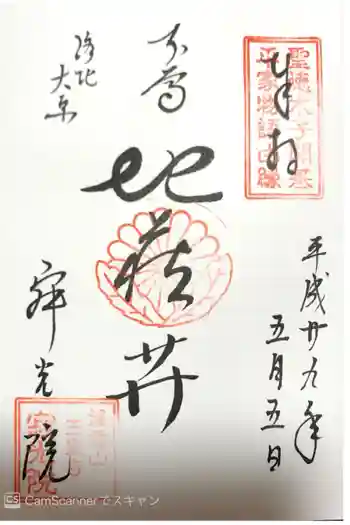 奉拝
聖徳太子開基
平家物語由縁
平成廿九年
五月五日
本尊
地蔵𦬇
洛北
大原
寂光院
寂光院
CS CamScannerでスキャン